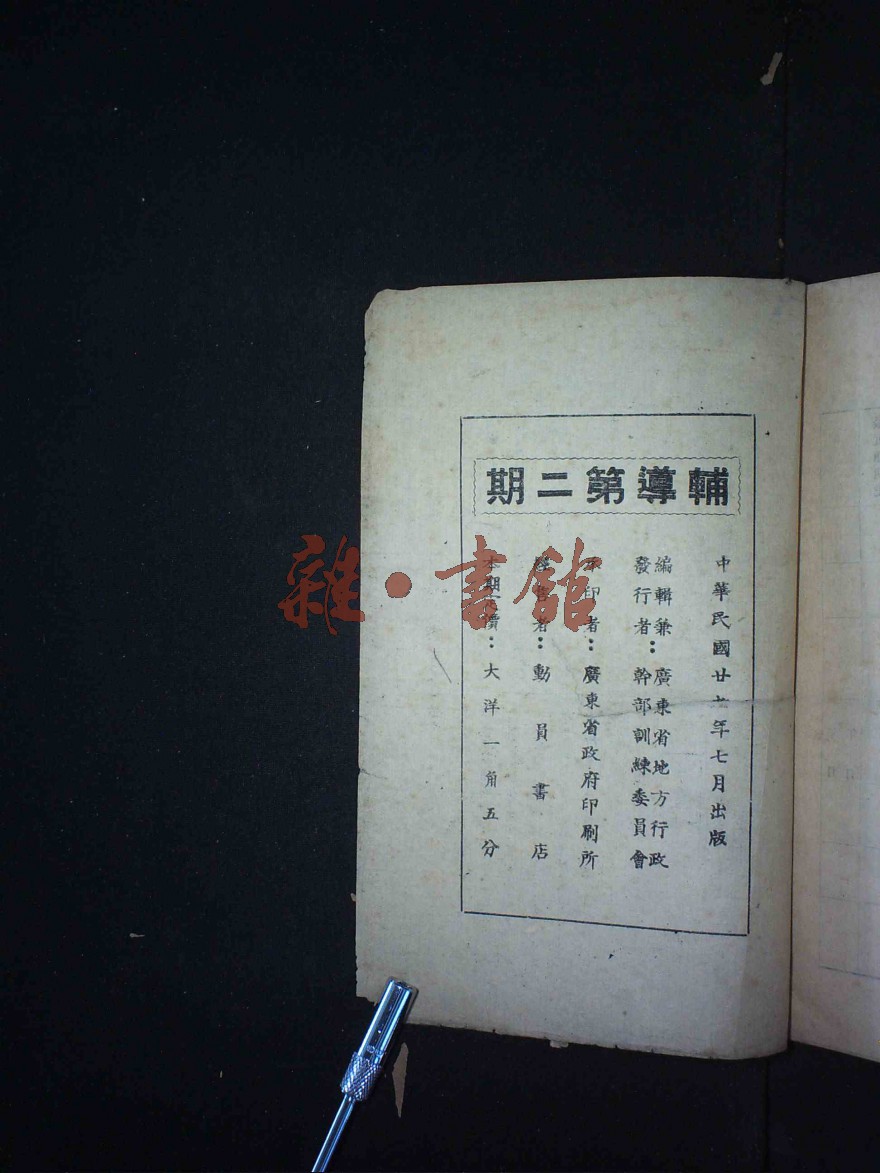 輔導第二期
中華民國廿七年七月出版
編輯兼發行者：廣東省地方行政幹部訓練委員會
承印者：廣東省政府印刷所
經售者：動員書店
本期定價：大洋一角五分
雜·書館